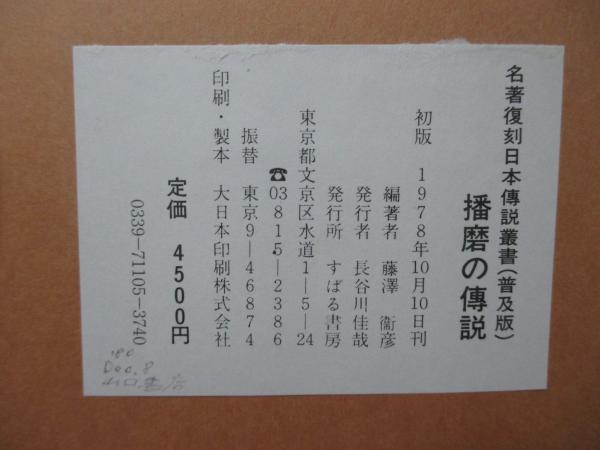 名著復刻日本傳説叢書(普及版)
播磨の傳説
初版　1978年10月10日刊
編著者　藤澤　衞彦
発行者　長谷川佳哉
発行所　すばる書房
東京都文京区水道1―5―24
☎03 815―2386
振替　東京9―46874
印刷・製本　大日本印刷株式会社
定価　4500円
0339―71105―3740
'80
Dec. 8
山口書店